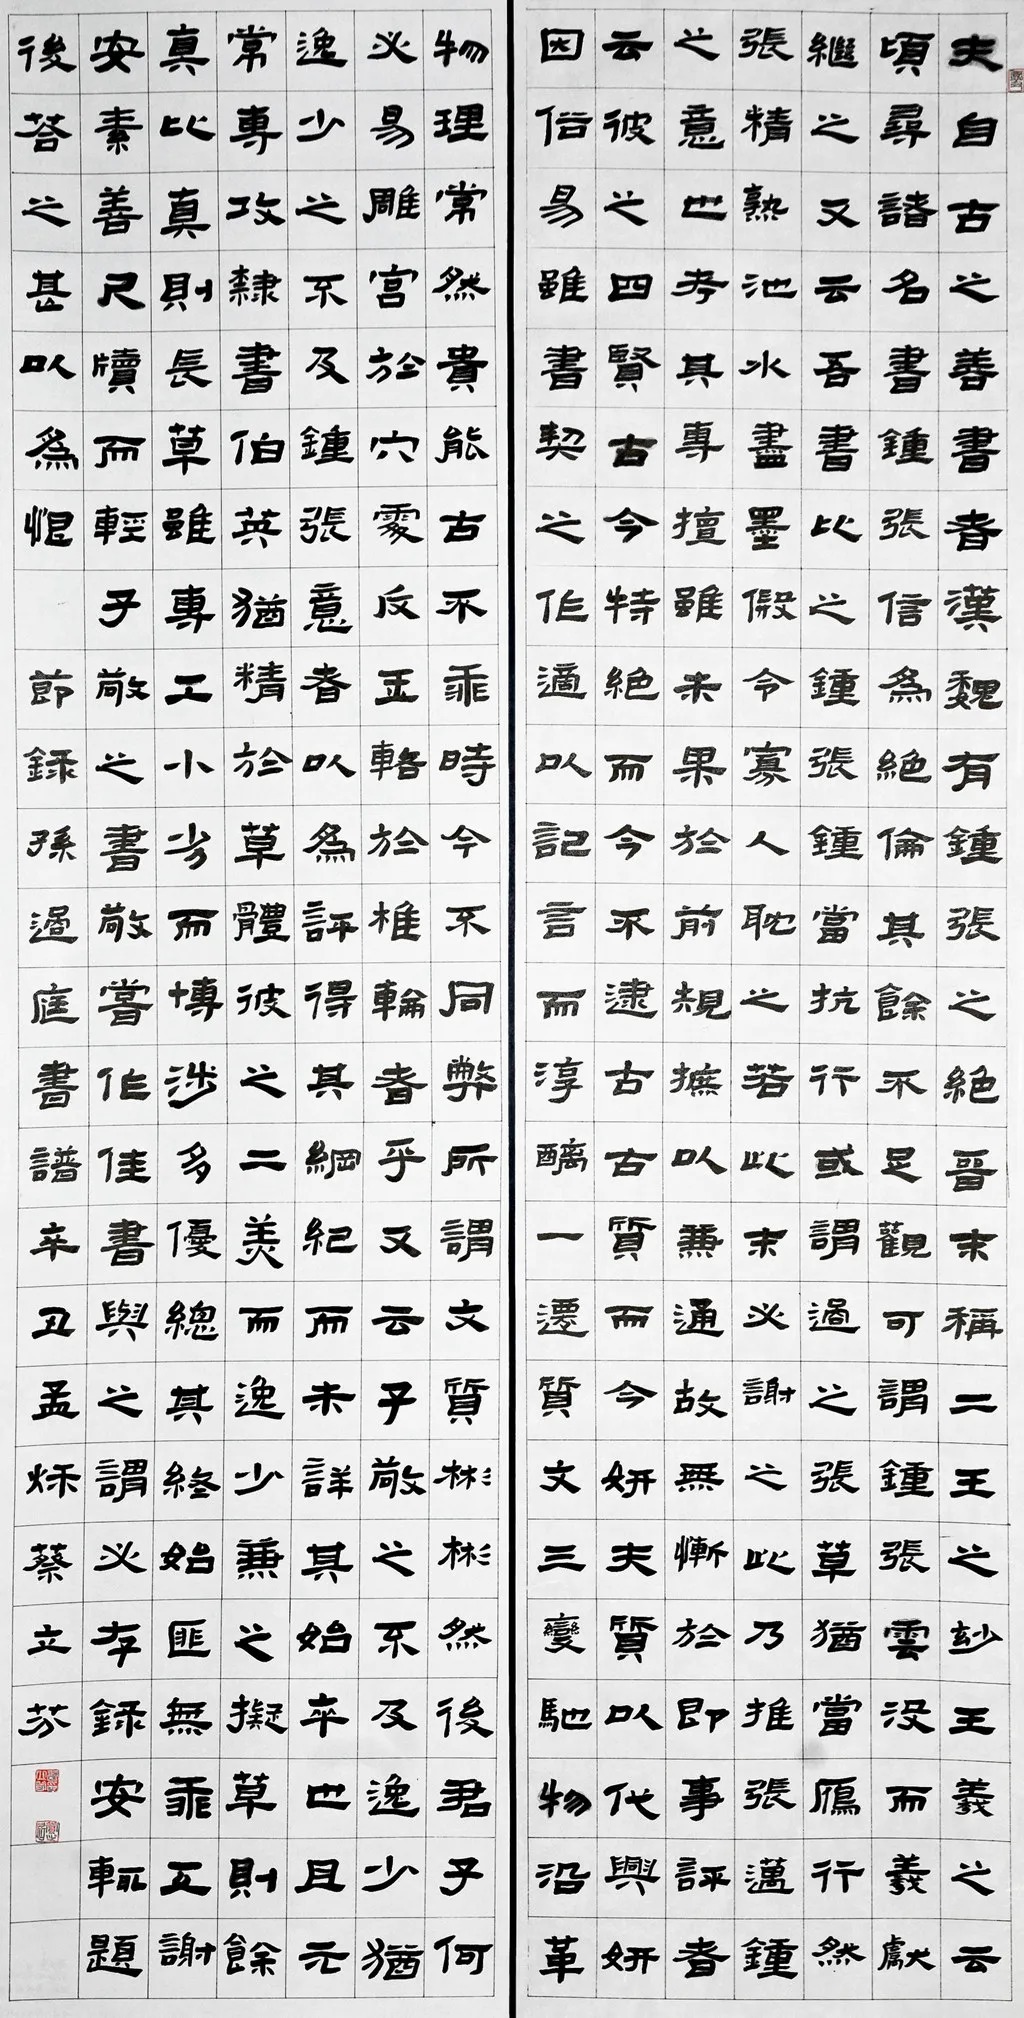 夫自古之善書者漢魏有鍾張之絶晉末稱二王之玅王羲之云
頃尋諸名書鍾張信為絶倫其餘不足觀可謂鍾張雲沒而羲獻
繼之又云吾書比之鍾張鍾當抗行或謂過之張草猶當鴈行然
張精熟池水盡墨假令寡人耽之若此未必謝之此乃推張邁鍾
之意也考其專擅雖未果於前規摭以兼通故無慚於即事評者
云彼之四賢古今特絶而今不逮古古質而今妍夫質以代興妍
因俗易雖書契之作適以記言而淳醨一遷質文三變馳物沿革
物理常然貴能古不乖時今不同弊所謂文質彬彬然後君子何
必易雕宮於穴處反玉輅於椎輪者乎又云子敬之不及逸少猶
逸少之不及鍾張意者以為評得其綱紀而未詳其始卒也且元
常專攻隸書伯英猶精於草體彼之二美而逸少兼之擬草則餘
真比真則長草雖專工小劣而博涉多優總其終始匪無乖互謝
安素善尺牘而輕子敬之書敬嘗作佳書與之謂必存録安輒題
後答之甚以為恨
節録孫過庭書譜辛丑孟秌蔡立芬